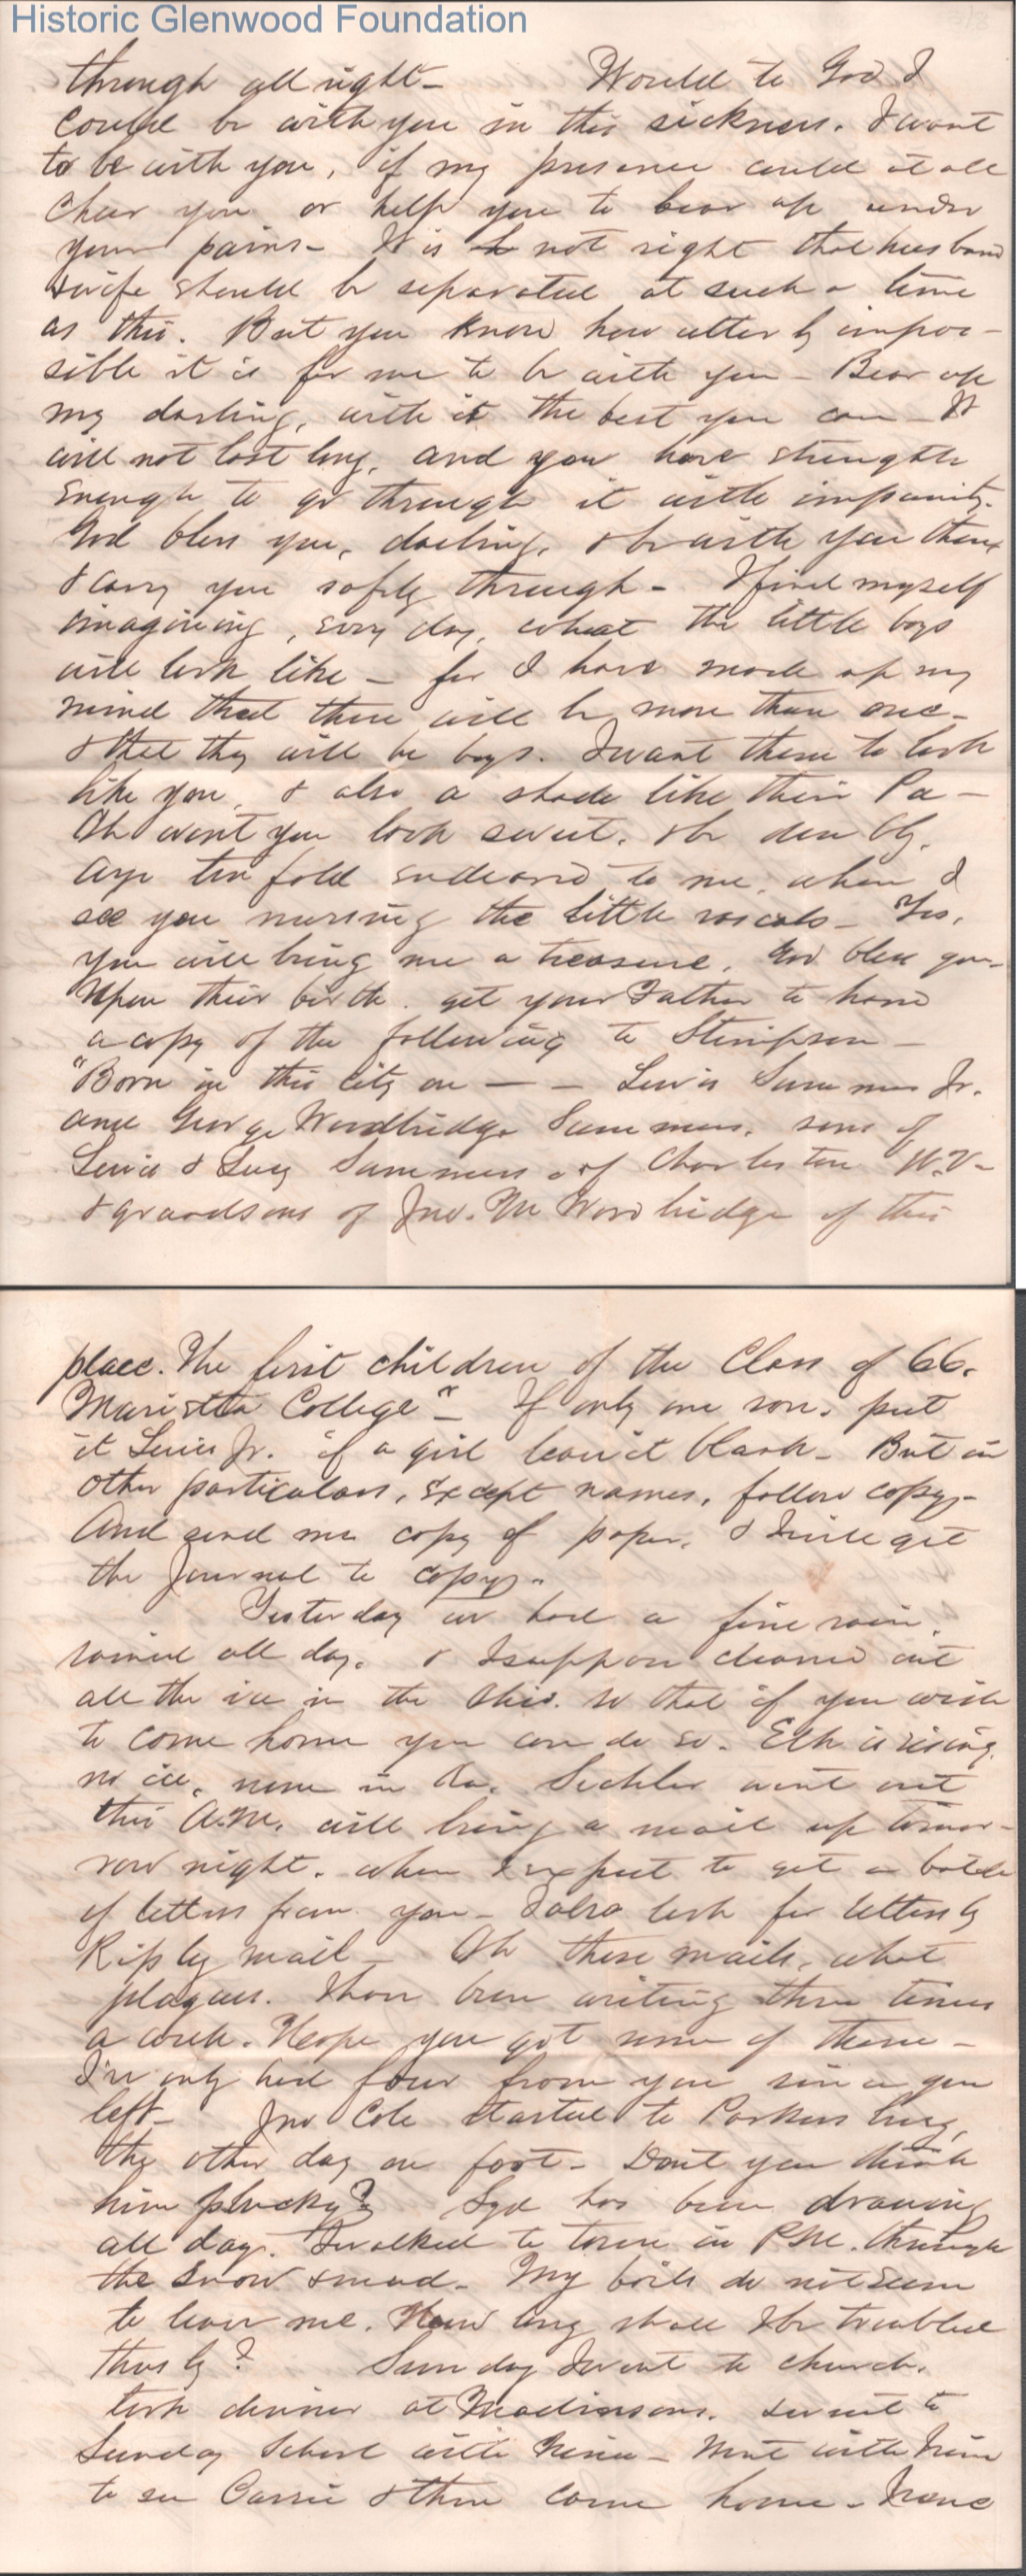 Historic Glenwood Foundation
through all right - Would to God I
could be with you in this sickness. I want
to be with you, if my presence could at all
cheer you or help you to bear up under
your pains - It is not right that husband
& wife should be separated at such a time
as this. But you know how utterly impos-
sible it is for me to be with you - Bear up
my darling, with it the best you can - It
will not last long, and you have strength
enough to go through it with impunity.
God bless you, darling, & be with you then
& carry you safely through - I find myself
imagining, every day, what the little boys
will look like - for I have made up my
mind that there will be more than one -
& that they will be boys. I want them to look
like you, & also a shade like their Pa -
Oh wont you look sweet, & be
Aye ten fold endeared to me, when I
see you nursing the little rascals - Yes,
you will bring me a treasure. God bless you -
Upon their birth. get your Father to hand
a copy of the following to Stimpson -
"Born in this city on — — Lewis Summers Jr.
and George Woodbridge Summers, sons of
Lewis & Lucy Summers of Charleston W.V -
& grandsons of Jno. M Woodbridge of this
place. The first children of the Class of 66.
Marietta College" - If only one son, put
it Lewis Jr. if a girl leave it blank - But in
other particulars, except names, follow copy -
And send me copy of paper, & I will get
the Journal to copy.
Yesterday we had a fine rain,
rained all day. & I suppose cleaned out
all the ice in the Ohio. so that if you wish
to come home you can do so. Elk is rising,
no ice, none in Ka. Sechler went out
this A.M. will bring a mail up tomor-
row night. when I expect to get a batch
of letters from you - I also look for letters by
Ripley mail - Oh these mails, what
plagues. I have been writing three times
a week. Hope you got some of them -
I've only had four from you since you
left - Jno Cole started to Parkersburg,
the other day on foot - Dont you think
him plucky? Syd has been drawing
all day. I walked to town in P.M. through
the snow & mud - My boils do not seem
to leave me. How long shall I be troubled
thusly? Sunday I went to church,
took dinner at Madinsons. I went to
Sunday School with - Went with
to see Carrie & then came home -